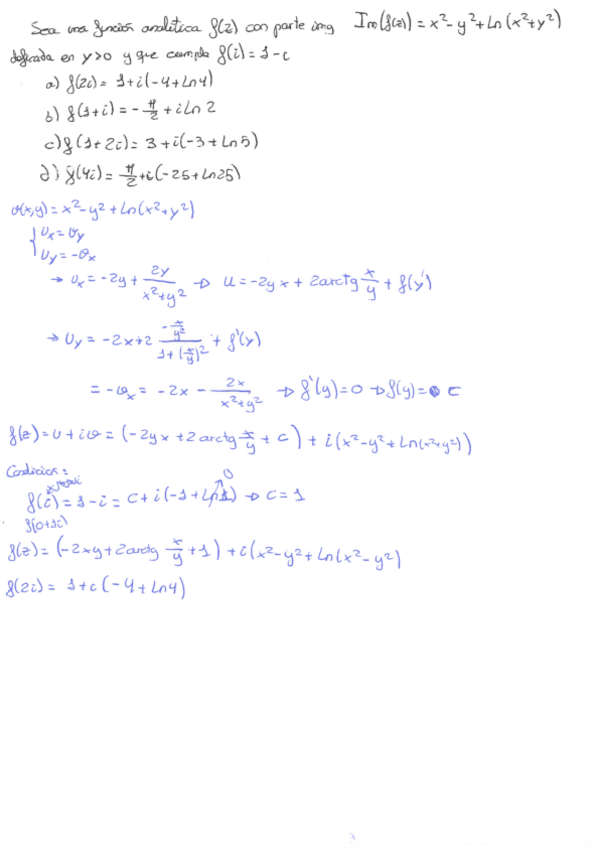 Sea una función analítica f(z) con parte img Im(f(z)) = x²-y²+Ln(x²+y²)
definida en y>0 y que cumpla f(i) = 1-i
a) f(2i) = 1+i(-4+Ln4)
b) f(1+i) = -π/2 + i Ln 2
c) f(1+2i) = 3+i(-3+Ln5)
d) f(4i) = π/2 + i(-25+Ln25)
v(x,y) = x²-y²+Ln(x²+y²)
{ Ux = Vy
Uy = -Vx
→ Ux = -2y + 2y/(x²+y²) → U = -2yx + 2arctg x/y + f(y)
→ Uy = -2x+2 (-x/y²)/(1+(x/y)²) + f'(y)
= -Vx = -2x - 2x/(x²+y²) → f'(y)=0 → f(y)= C
f(z) = U+iV = (-2yx + 2arctg x/y + C) + i(x²-y²+Ln(x²+y²))
Condición:
f(i) = 1-i = C+i(-1+Ln1) → C=1
0
f(0+1i)
f(z) = (-2xy+2arctg x/y +1) + i(x²-y²+Ln(x²-y²)
f(2i) = 1+i(-4+Ln4)